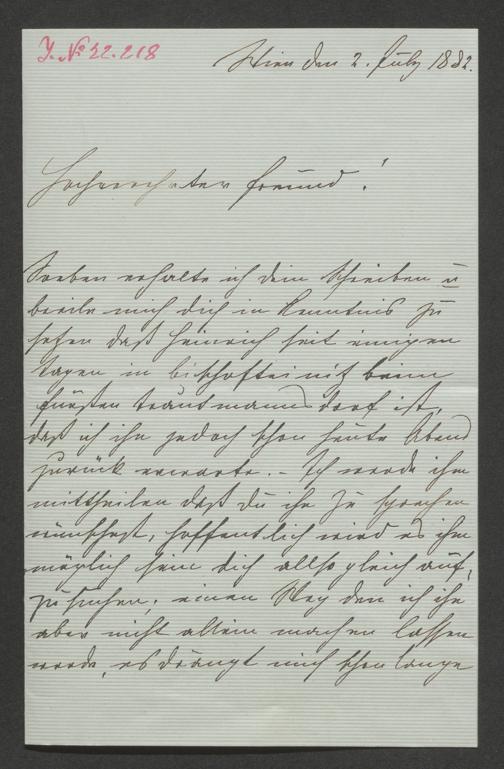 J. No 22.218
Wien den 2. July 1882.
Hochverehrter Freund!
Soeben erhalte ich dein Schreiben u
beeile mich dich in Kenntnis zu
setzen daß Heinrich seit einigen
Tagen in Bischofteinitz beim
Fürsten Trautmannsdorf ist,
daß ich ihn jedoch schon heute Abend
zurück erwarte. – Ich werde ihm
mittheilen daß du ihn zu sprechen
wünschest, hoffentlich wird es ihm
möglich sein dich allso gleich auf,
zusuchen; einen Weg den ich ihn
aber nicht allein machen lassen
werde, es drängt mich schon lange